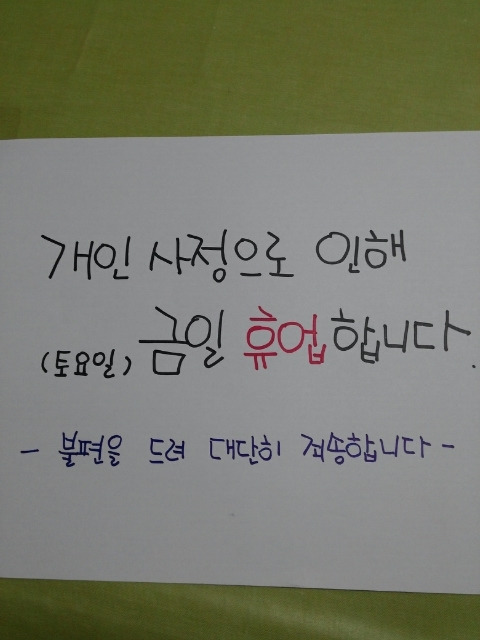 개인 사정으로 인해
(토요일) 금일 휴업합니다.
- 불편을 드려 대단히 죄송합니다 -